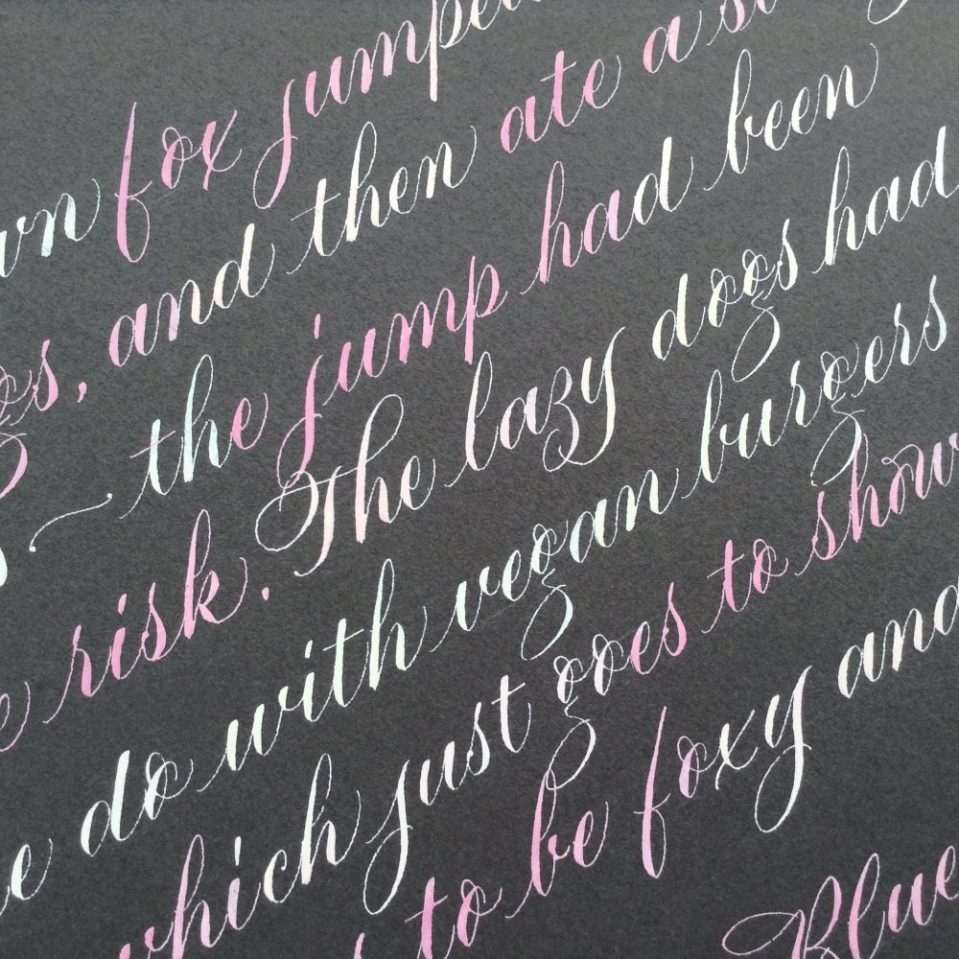 fox jumped
and then ate a
the jump had been
risk. The lazy dogs had
do with vegan burgers
which just goes to show
to be foxy and
Blue